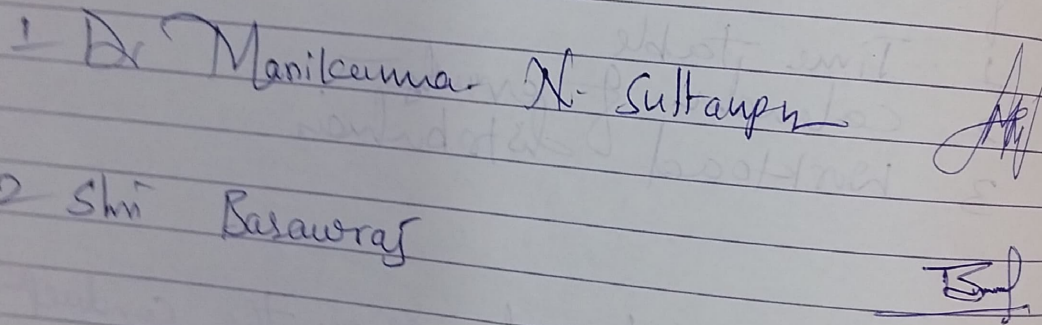 1 Dr Manilkumar N. Sultanpur
2 Shri Basawraj